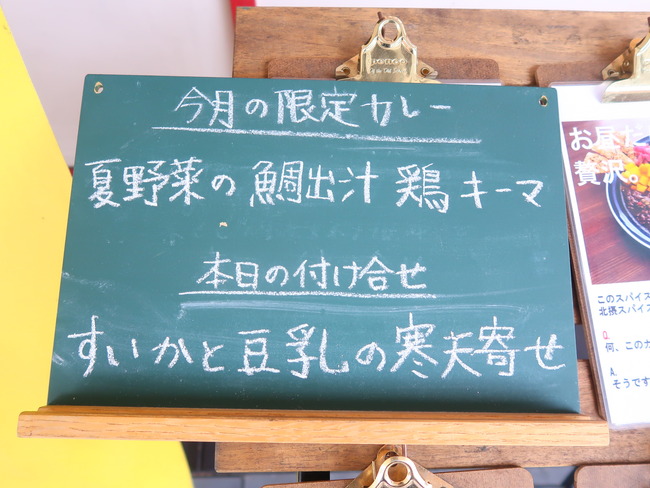 今月の限定カレー
夏野菜の鯛出汁 鶏キーマ
本日の付け合せ
すいかと豆乳の寒天寄せ
お昼だ
贅沢。
このスパイス
北摂スパイ
Q.
何、このカ
A.
そうです